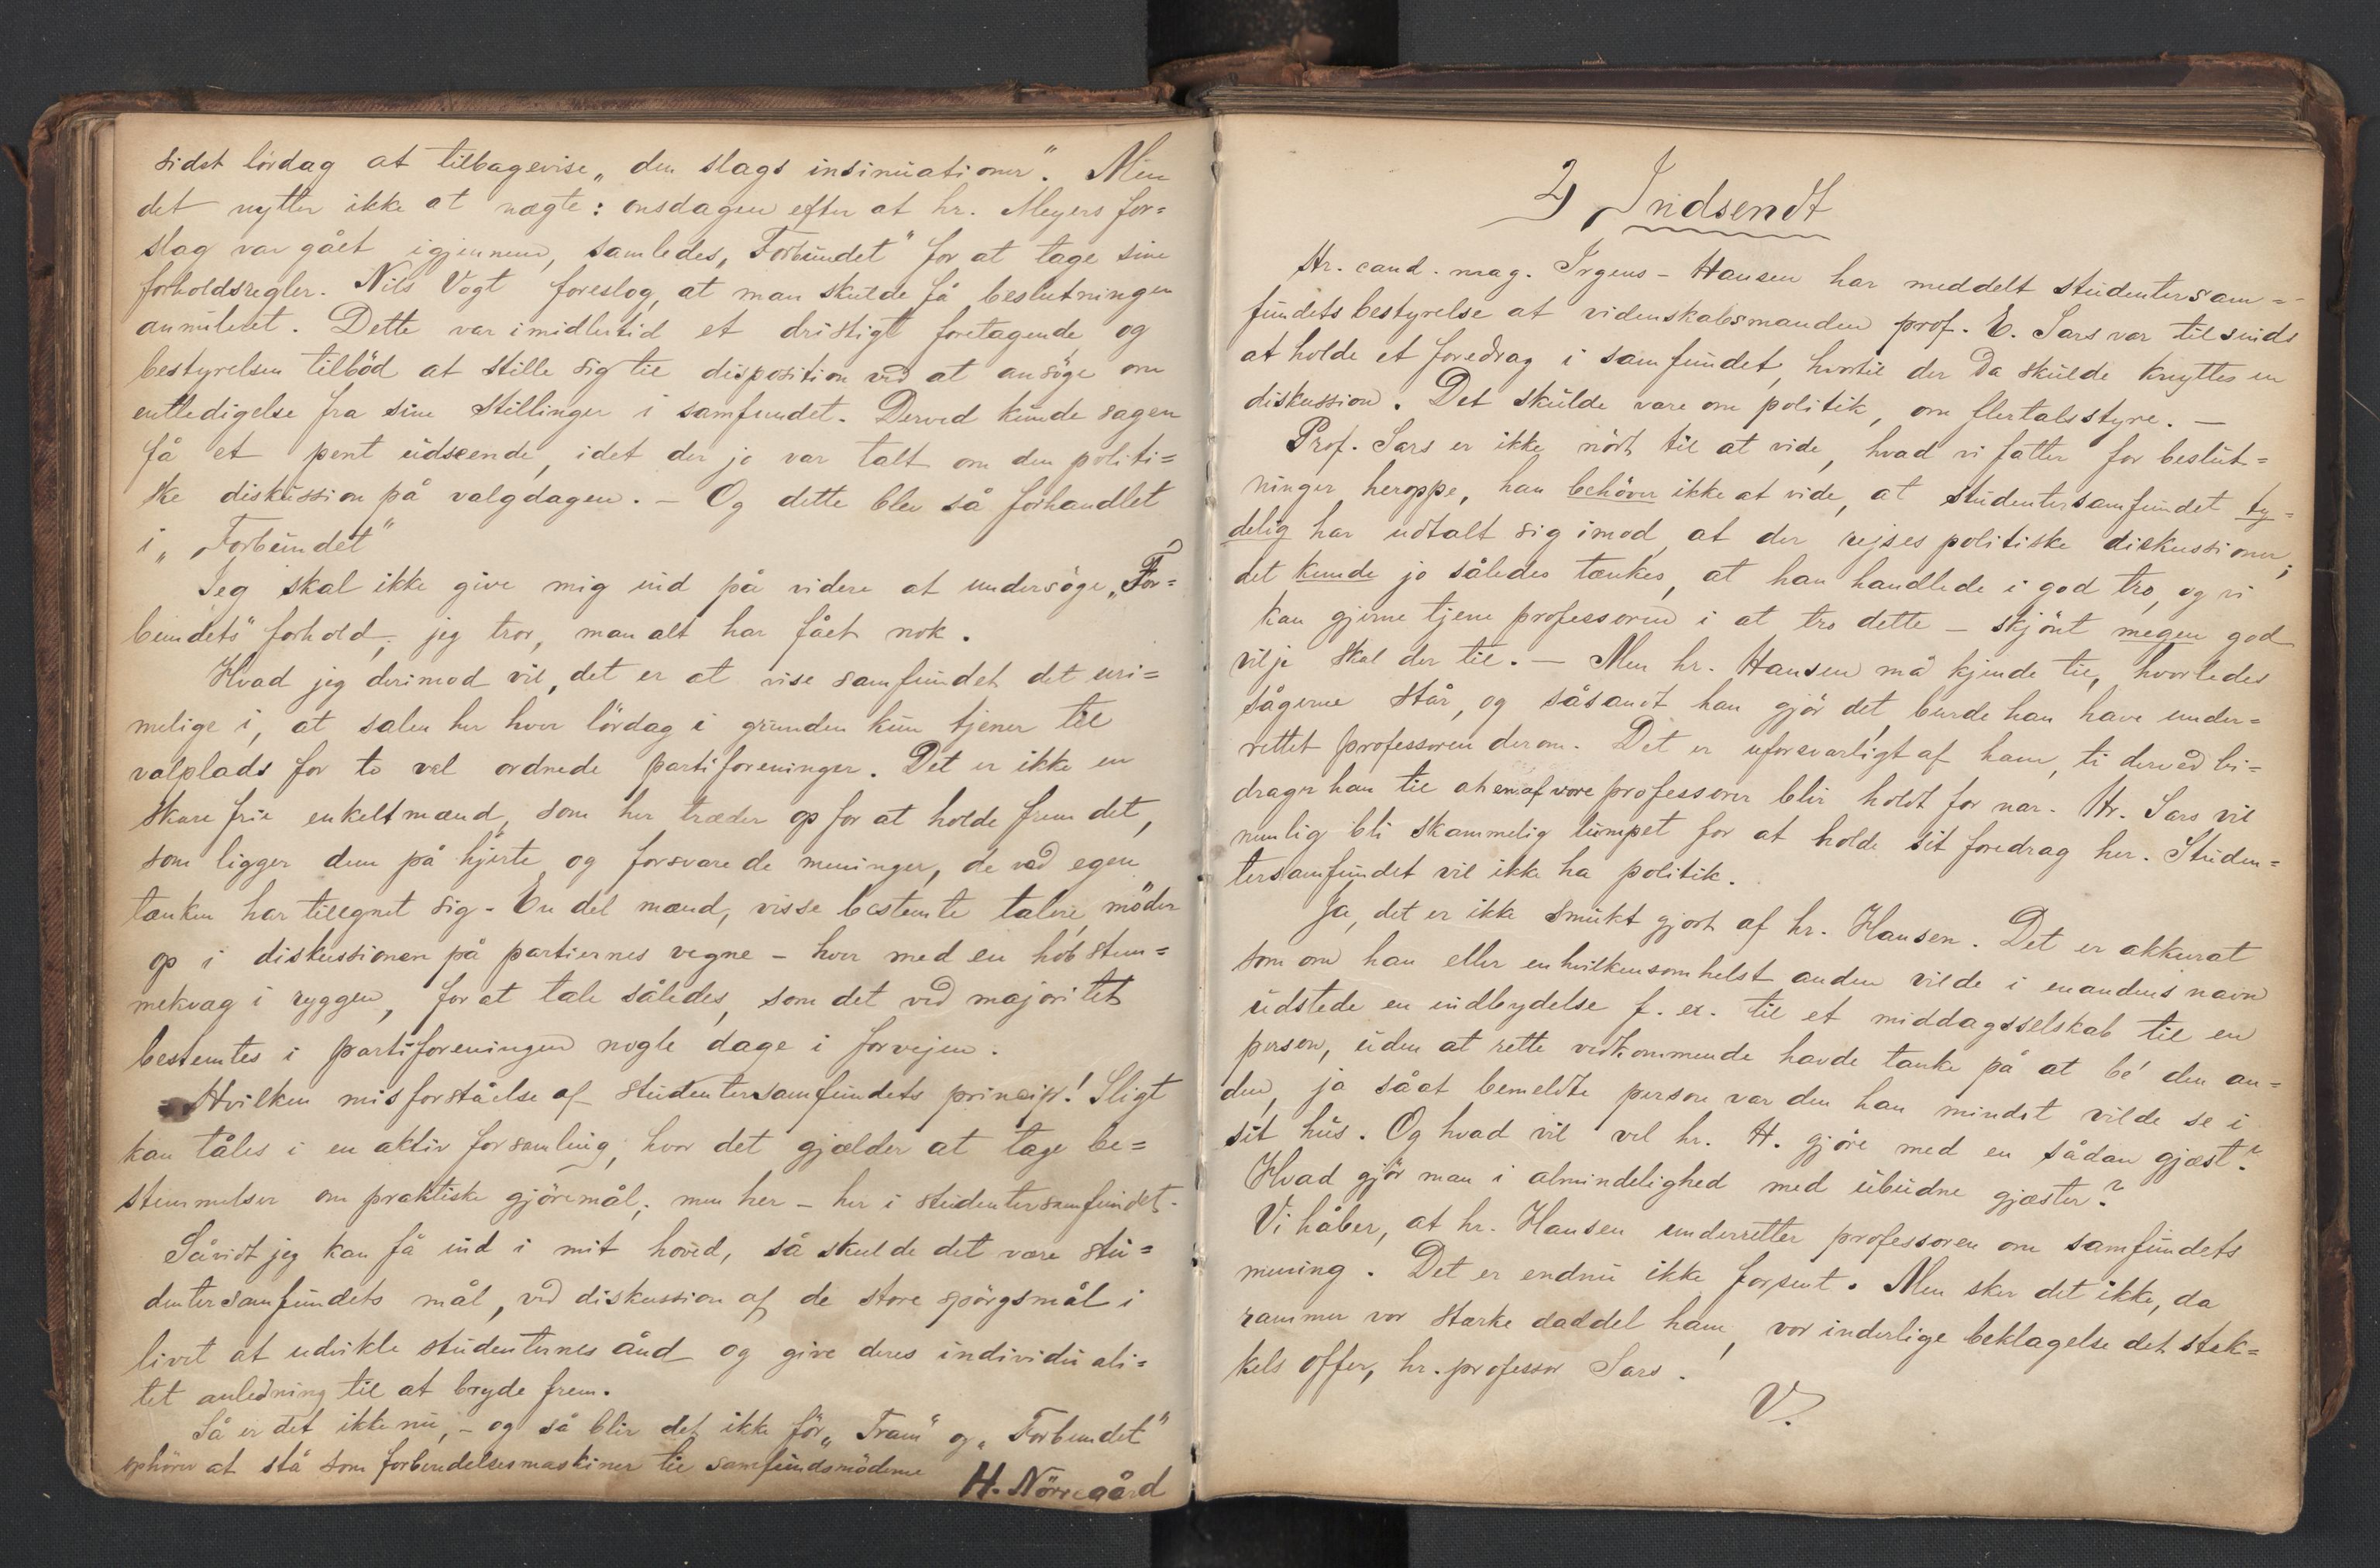 sidst lördag at tilbagevise „den slags insinuationer“. Men
det nytter ikke at nægte: onsdagen efter at hr. Meyers for=
slag var gået igjennem, samledes „Forbundet“ for at tage sine
forholdsregler. Nils Vogt foreslog, at man skulde få beslutningen
annuleret. Dette var imidlertid et dristigt foretagende og
bestyrelsen tilböd at stille sig til disposition ved at ansöge om
entledigelse fra sine stillinger i samfundet. Derved kunde sagen
få et pent udseende, idet der jo var talt om den politi=
ske diskussion på valgdagen. – Og dette blev så forhandlet
i „Forbundet“
Jeg skal ikke give mig ind på videre at undersöge „For=
bundets“ forhold; jeg tror, man alt har fået nok.
Hvad jeg derimod vil, det er at vise samfundet det uri=
melige i, at salen her hver lördag i grunden kun tjener til
valplads for to vel ordnede partiforeninger. Det er ikke en
skare frie enkeltmænd, som her træder op for at holde frem det,
som ligger dem på hjerte og forsvare de meninger, de ved egen
tanken har tilegnet sig. En del mænd, visse bestemte talere, möder
op i diskussionen på partiernes vegne – hver med en hob stem=
mekvæg i ryggen, for at tale således, som det ved majoritet
bestemtes i partiforeningen nogle dage i forvejen.
Hvilken misforståelse af studentersamfundets princip! Sligt
kan tåles i en aktiv forsamling, hvor det gjælder at tage be=
stemmelser om praktiske gjöremål; men her – her i studentersamfundet.
Såvidt jeg kan få ind i mit hoved, så skulde det være stu=
dentersamfundets mål, ved diskussion af de store spörgsmål i
livet at udvikle studenternes ånd og give deres individuali=
tet anledning til at bryde frem.
Så er det ikke nu, – og så blir det ikke för „Fram“ og „Forbundet“
ophörer at stå som forberedelsesmaskiner til samfundsmöderne
H. Nörregård
2) Indsendt
Hr. cand. mag. Irgens-Hansen har meddelt studentersam=
fundets bestyrelse at videnskabsmanden prof. E. Sars var tilsinds
at holde et foredrag i samfundet, hvortil der da skulde knyttes en
diskussion. Det skulde være om politik, om flertalsstyre. –
Prof. Sars er ikke nödt til at vide, hvad vi fatter for beslut=
ninger heroppe, han behöver ikke at vide, at studentersamfundet ty=
delig har udtalt sig imod, at der rejses politiske diskussioner;
det kunde jo således tænkes, at han handlede i god tro, og vi
kan gjerne tjene professoren i at tro dette – skjönt megen god
vilje skal der til. – Men hr. Hansen må kjende til, hvorledes
sagerne står, og såsandt han gjör det, burde han have under=
rettet professoren derom. Det er uforsvarligt af ham, ti derved bi=
drager han til at en af vore professorer blir holdt for nar. Hr. Sars vil
nemlig bli skammelig lumpet for at holde sit foredrag her. Studen=
tersamfundet vil ikke ha politik.
Ja, det er ikke smukt gjort af hr. Hansen. Det er akkurat
som om han eller en hvilkensomhelst anden vilde i en andens navn
udstede en indbydelse f. ex. til et middagsselskab til en
person, uden at rette vedkommende havde tanke på at bé den an=
den, ja såat bemeldte person var den han mindst vilde se i
sit hus. Og hvad vil vel hr. H. gjöre med en sådan gjæst?
Hvad gjör man i almindelighed med übudne gjæster?
Vi håber, at hr. Hansen underretter professoren om samfundets
mening. Det er endnu ikke forsent. Men sker det ikke, da
rammer vor stærke daddel ham, vor inderlige beklagelse det stak=
kels offer, hr. professor Sars.
V.